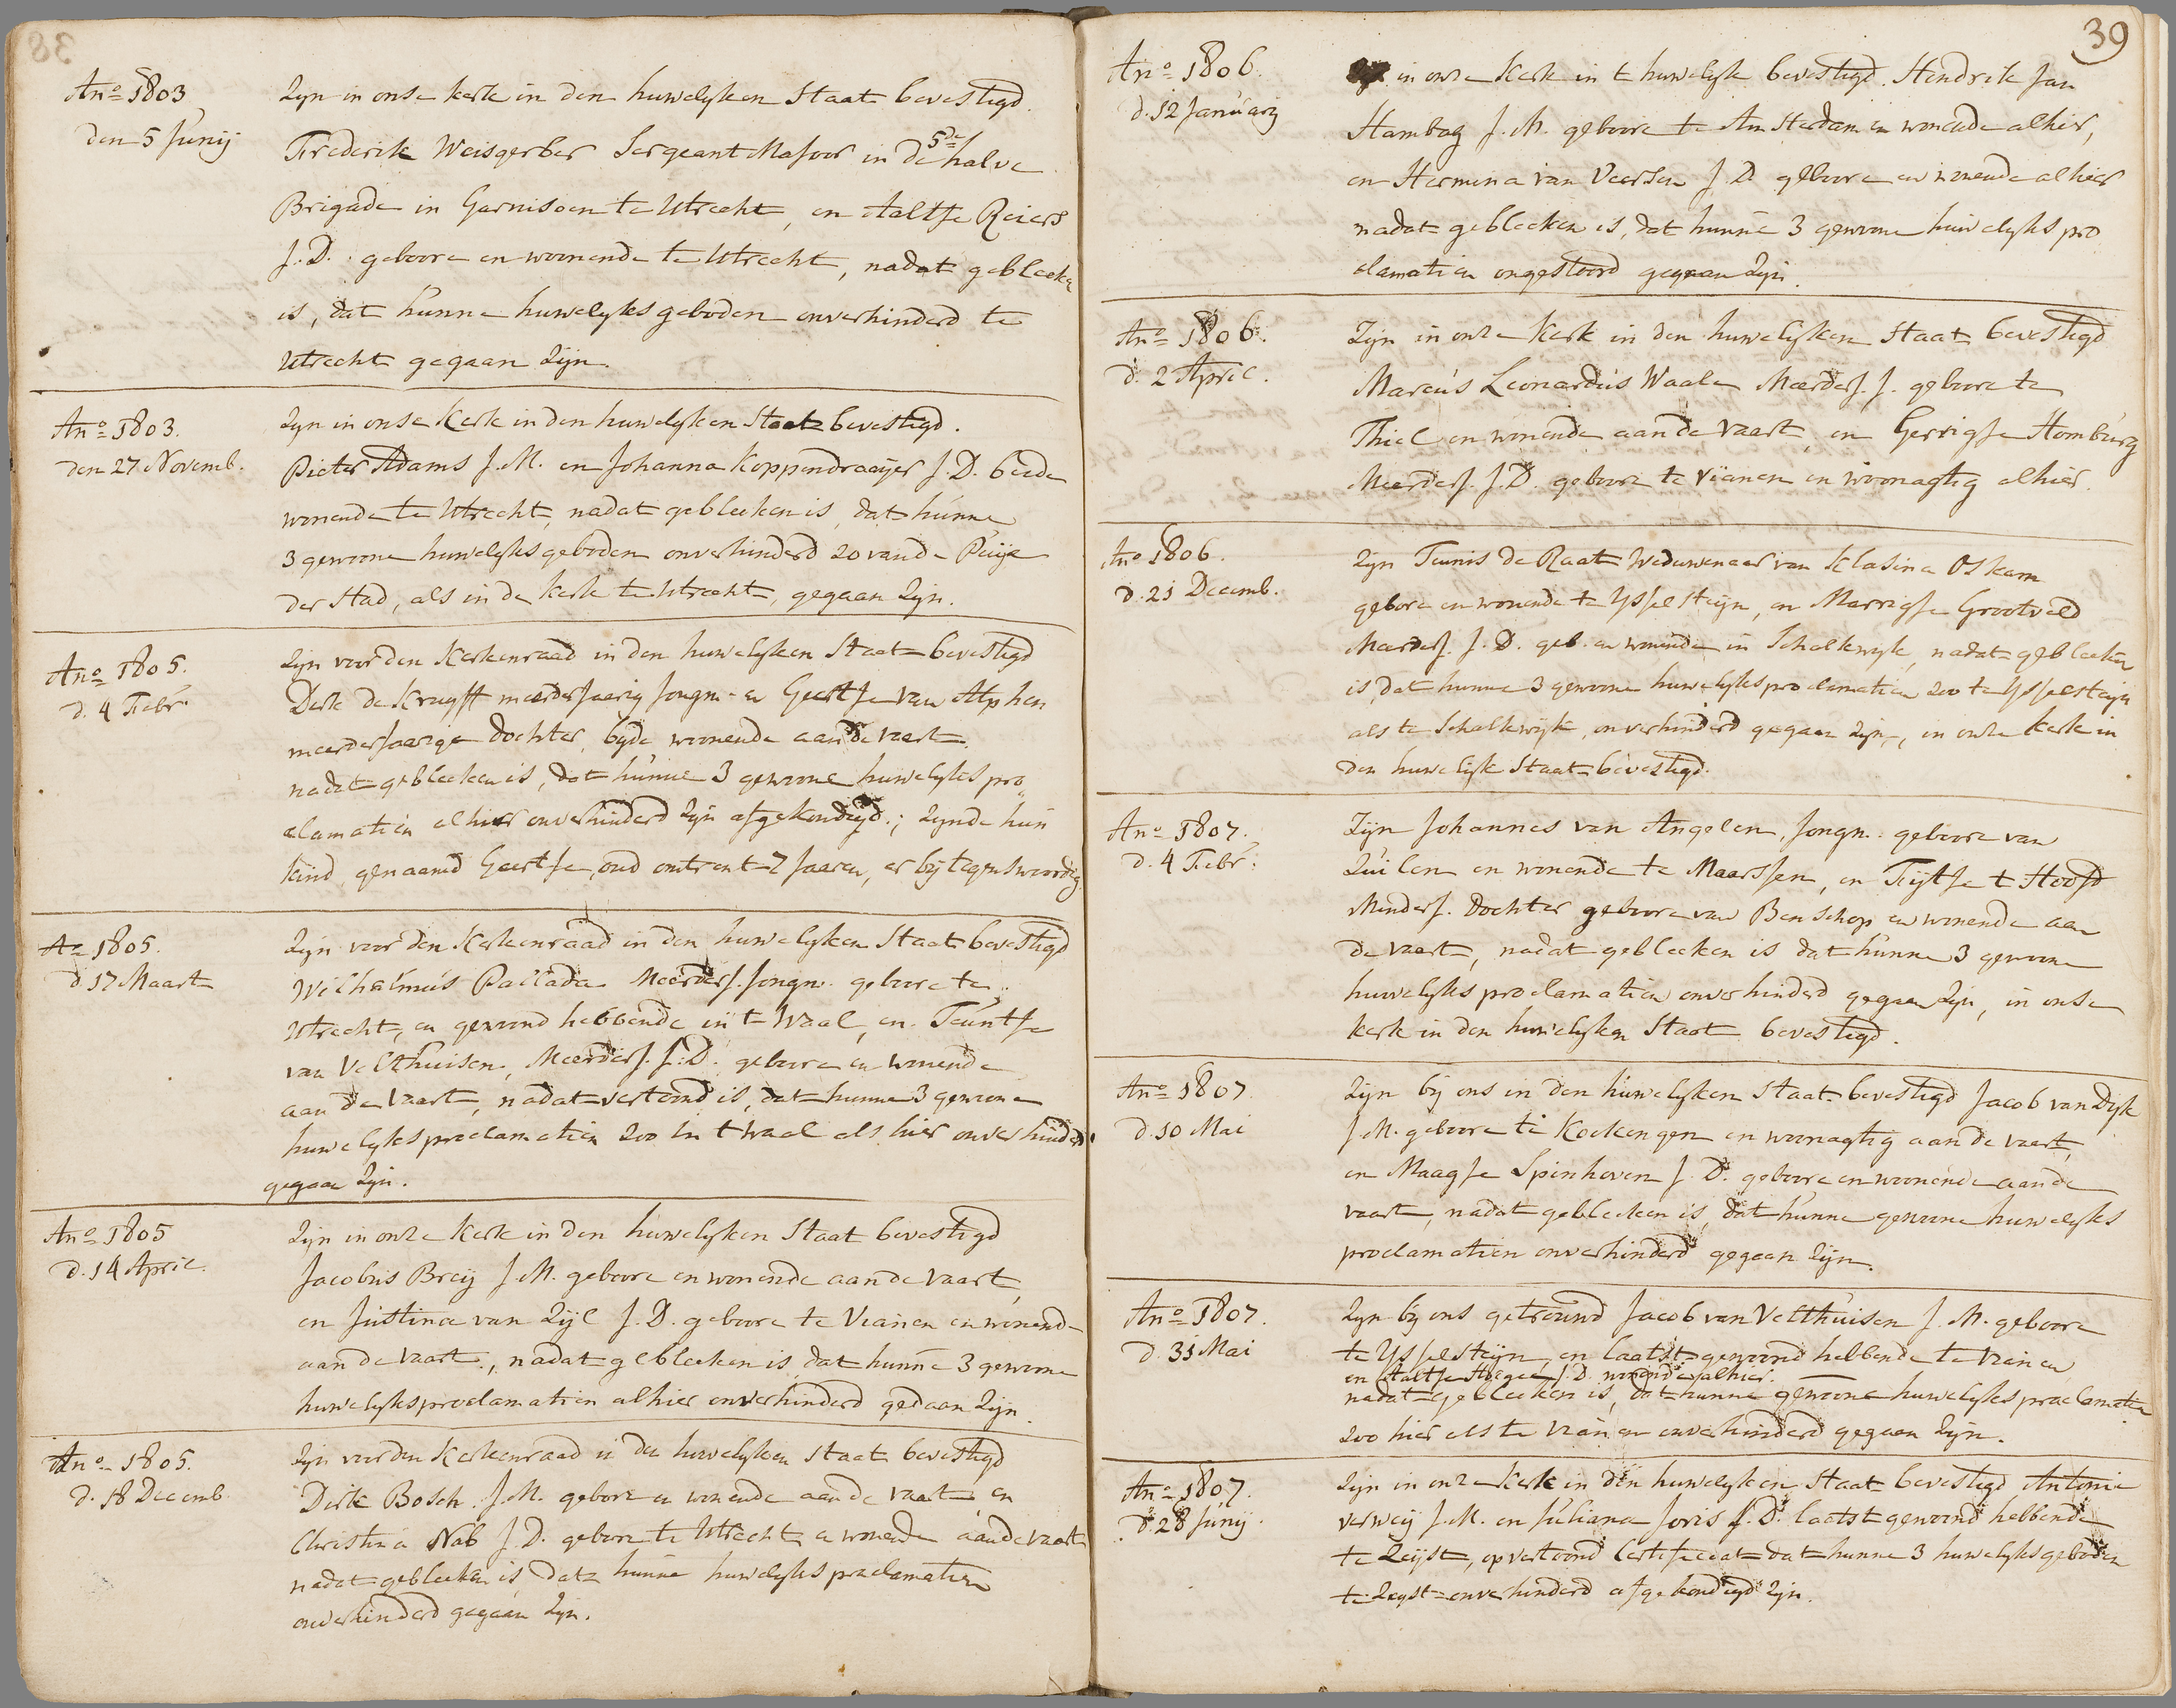 Anº 1803
den 5 Junij
Zijn in onse kerk in den huwelyken Staat bevestigd.
Frederik Weisgerber Sergeant Majoor in de 5de halve
Brigade in Garnisoen te Utrecht, en Aaltje Reiers
J.D. geboore en woonende te Utrecht, nadat gebleeken
is, dat hunne huwelyks geboden onverhinderd te
Utrecht gegaan Zijn.
Anº 1803.
den 27 Novemb.
Zijn in onse Kerk in den huwelyken Staat bevestigd.
Pieter Adams J.M. en Johanna Koppendraaijer J.D. beide
wonende te Utrecht, nadat gebleeken is, dat hunne
3 gewoone huwelyks geboden onverhinderd zo van de Puije
der Stad, als in de Kerk te Utrecht, gegaan Zijn.
Anº 1805.
d. 4 Febr.
Zijn voor den Kerkenraad in den huwelyken Staat bevestigd
Derk de Kruyff meerderjaerig Jongm. en Geertje van Alphen
meerderjaerige Dochter, byde woonende aan de vaart.
nadat gebleeken is, dat hunne 3 gewoone huwelyks pro„
clamatien alhier onverhinderd zijn afgekondigd; zynde hun
kind, genaamd Geertje, oud omtrent 7 Jaaren, er bij tegenswoordig.
Aº 1805.
d. 17 Maart
Zijn voor den Kerkenraad in den huwelyken Staat bevestigd
Wilhelmus Pallada Meerderj. Jongm. geboore te
Utrecht, en gewoond hebbende in 't Waal, en Teuntje
van Velthuisen, Meerderj. J.D. geboore en wonende
aan de Vaart, nadat vertoond is, dat hunne 3 gewone
huwelyks proclamatien zoo in t waal als hier onverhinderd
gegaan Zijn.
Anº 1805
d. 14 April.
Zijn in onze Kerk in den huwelyken Staat bevestigd
Jacobus Breij J.M. geboore en wonende aan de Vaart,
en Justina van Zijl J.D. geboore te Vianen en wonende
aan de Vaart, nadat gebleeken is, dat hunne 3 gewoone
huwelyksproclamatien alhier onverhinderd gedaan Zijn.
Anº 1805.
d. 18 Decemb.
Zijn voor den Kerkenraad in den huwelyken Staat bevestigd
Dirk Bosch J.M. gebore en wonende aan de vaart, en
Christina Nab J.D. gebore te Utrecht en wonende aan de vaart
nadat gebleeken is, dat hunne huwelyks proclamatien
onverhinderd gegaan Zijn.
39
Anº 1806.
d. 12 January
in onze Kerk in t huwelyk bevestigd. Hendrik Jan
Hambag J.M. geboore te Amsterdam en wonende alhier,
en Hermina van Veersen J.D. geboore en wonende alhier
nadat gebleeken is, dat hunne 3 gewoone huwelyks pro
clamatien ongestoord gegaan Zijn.
Anº 1806.
d. 2 April.
Zijn in onze Kerk in den huwelyken Staat bevestigd
Marcus Leonardus Waale Meerderj. J. geboore te
Thiel en wonende aan de vaart, en Gerrigje Homburg
Meerderj. J.D. geboore te Vianen en woonagtig alhier.
Anº 1806.
d. 21 Decemb.
Zijn Teunis de Raat Weduwenaar van Klasina Oskam
gebore en wonende te Ysselsteijn, en Marrigje Grootveld
Meerderj. J.D. geb. en wonende in Schalkwyk, nadat gebleeken
is, dat hunne 3 gewoone huwelyks proclamatien zoo te Ysselsteijn
als te Schalkwijk, onverhinderd gegaan zijn, in onze Kerk in
den huwelijk Staat bevestigd.
Anº 1807.
d. 4 Febr:
Zijn Johannes van Angelen, Jongm. geboore van
Zuilen en wonende te Maarssen, en Fijtje t Hooft
Minderj. Dochter geboore van Benschop en wonende aan
de vaart, nadat gebleeken is dat hunne 3 gewoone
huwelyks proclamatien onverhinderd gegaan Zijn, in onse
kerk in den huwelyken Staat bevestigd.
Anº 1807
d. 10 Mai
Zijn bij ons in den huwelyken Staat bevestigd Jacob van Dyk
J.M. geboore te Kockengen en woonagtig aan de vaart,
en Maagje Spinhoven J.D. geboore en woonende aan de
vaart, nadat gebleeken is, dat hunne gewoone huwelyks
proclamatien onverhinderd gegaan Zijn.
Anº 1807.
d. 31 Mai
Zijn bij ons getrouwd Jacob van Velthuisen J.M. geboore
te Ysselsteijn, en laatst gewoond hebbende te Vianen
en Aaltje J.D. wonende alhier.
nadat gebleeken is, dat hunne gewoone huwelyks proclamatien
zoo hier als te Vianen onverhinderd gegaan Zijn.
Anº 1807.
d. 28 Junij.
Zijn in onze Kerk in den huwelyken Staat bevestigd Antonie
Verweij J.M. en Juliana Joris J.D. laatst gewoond hebbende
te Zeijst, op vertoond Certificaat dat hunne 3 huwelyks geboden
te Zeyst onverhinderd afgekondigd zijn.